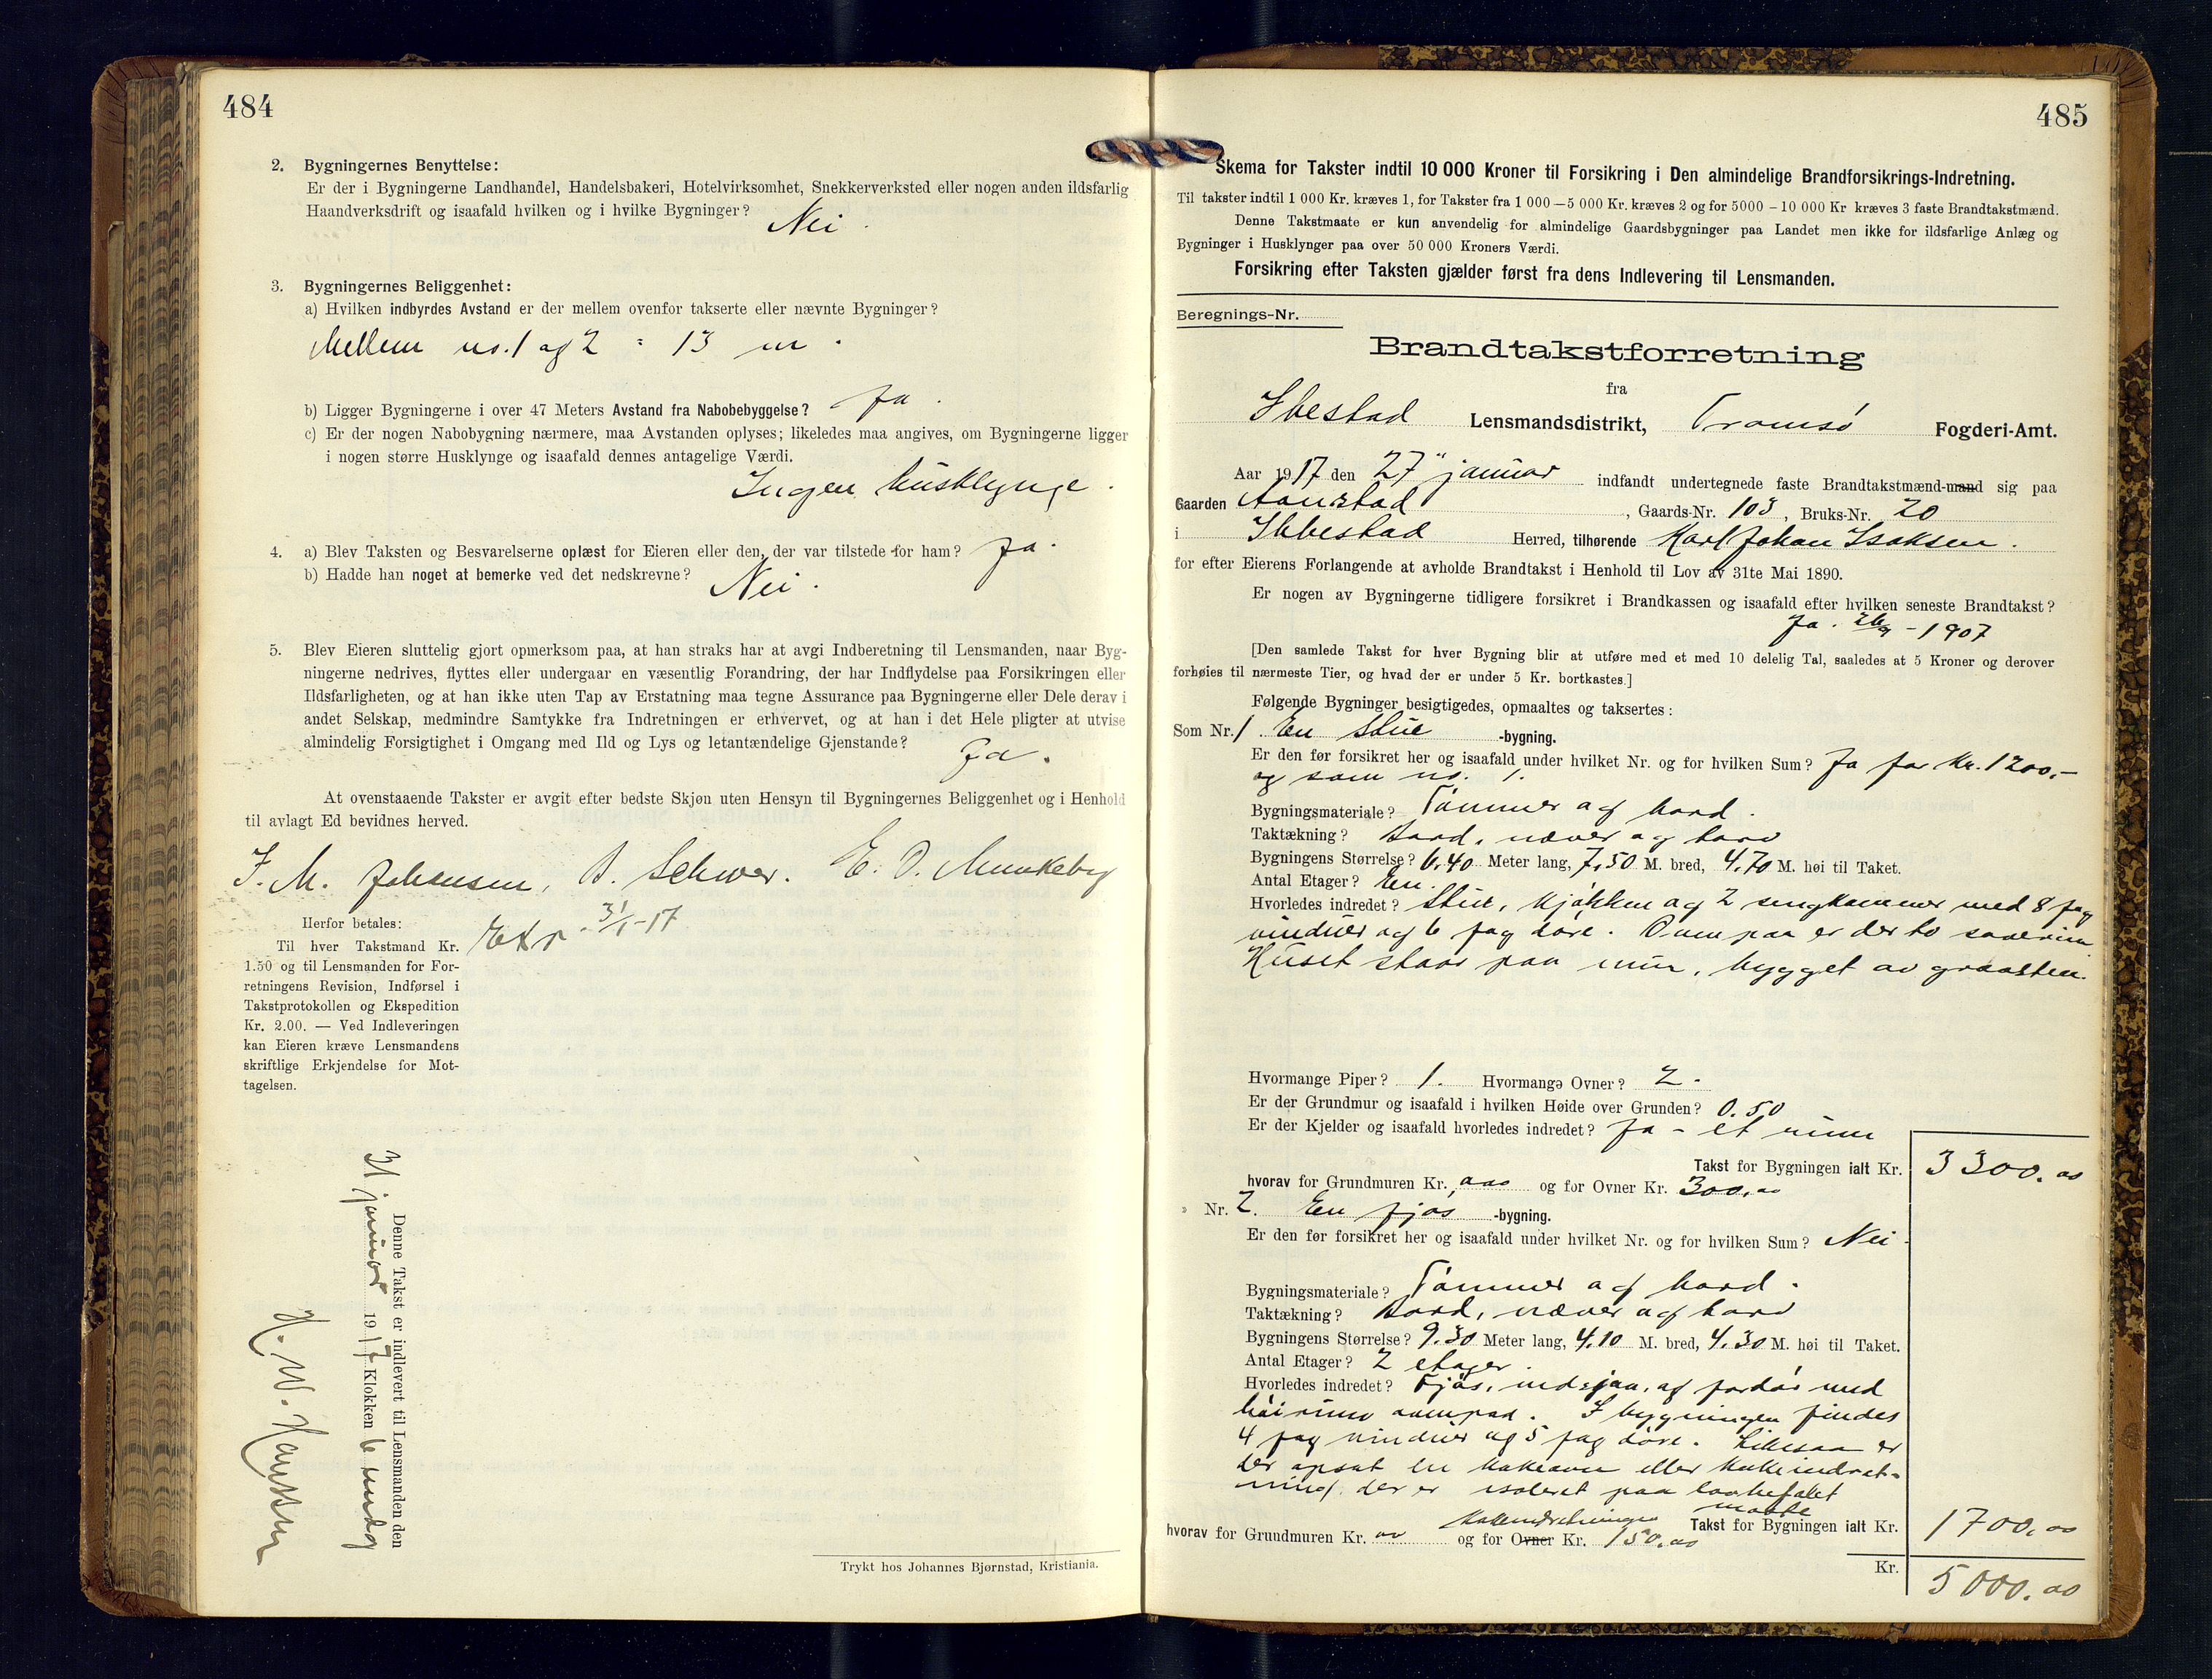 484
2. Bygningernes Benyttelse:
Er der i Bygningerne Landhandel, Handelsbakeri, Hotelvirksomhet, Snekkerverksted eller nogen anden ildsfarlig
Haandverksdrift og isaafald hvilken og i hvilke Bygninger? Nei.
3. Bygningernes Beliggenhet:
a) Hvilken indbyrdes Avstand er der mellem ovenfor takserte eller nævnte Bygninger?
Mellem no. 1 og 2 = 13 m.
b) Ligger Bygningerne i over 47 Meters Avstand fra Nabobebyggelse? Ja.
c) Er der nogen Nabobygning nærmere, maa Avstanden oplyses; likeledes maa angives, om Bygningerne ligger
i nogen større Husklynge og isaafald dennes antagelige Værdi.
Ingen husklynge.
4. a) Blev Taksten og Besvarelserne oplæst for Eieren eller den, der var tilstede for ham? Ja.
b) Hadde han noget at bemerke ved det nedskrevne? Nei.
5. Blev Eieren sluttelig gjort opmerksom paa, at han straks har at avgi Indberetning til Lensmanden, naar Byg-
ningerne nedrives, flyttes eller undergaar en væsentlig Forandring, der har Indflydelse paa Forsikringen eller
Ildsfarligheten, og at han ikke uten Tap av Erstatning maa tegne Assurance paa Bygningerne eller Dele derav i
andet Selskap, medmindre Samtykke fra Indretningen er erhvervet, og at han i det Hele pligter at utvise
almindelig Forsigtighet i Omgang med Ild og Lys og letantændelige Gjenstande? Ja.
At ovenstaaende Takster er avgit efter bedste Skjøn uten Hensyn til Bygningernes Beliggenhet og i Henhold
til avlagt Ed bevidnes herved.
J. M. Johansen, Schwer. E. O. Munkeby
Herfor betales:
Til hver Takstmand Kr.
1.50 og til Lensmanden for For-
retningens Revision, Indførsel i
Takstprotokollen og Ekspedition
Kr. 2.00. — Ved Indleveringen
kan Eieren kræve Lensmandens
skriftlige Erkjendelse for Mot-
tagelsen.
Exp. 31/1-17
Denne Takst er indlevert til Lensmanden den
31 januar 1917 Klokken 6 middag
Trykt hos Johannes Bjørnstad, Kristiania.
485
Skema for Takster indtil 10 000 Kroner til Forsikring i Den almindelige Brandforsikrings-Indretning.
Til takster indtil 1 000 Kr. kræves 1, for Takster fra 1 000—5 000 Kr. kræves 2 og for 5000—10 000 Kr kræves 3 faste Brandtakstmænd.
Denne Takstmaate er kun anvendelig for almindelige Gaardsbygninger paa Landet men ikke for ildsfarlige Anlæg og
Bygninger i Husklynger paa over 50 000 Kroners Værdi.
Forsikring efter Taksten gjælder først fra dens Indlevering til Lensmanden.
Beregnings-Nr.
Brandtakstforretning
fra
Ibestad Lensmandsdistrikt, Tromsö Fogderi-Amt.
Aar 1917 den 27 januar indfandt undertegnede faste Brandtakstmænd-mand sig paa
Gaarden Aanstad, Gaards-Nr. 103, Bruks-Nr. 20
i Ibbestad Herred, tilhørende Karl Johan Isaksen.
for efter Eierens Forlangende at avholde Brandtakst i Henhold til Lov av 31te Mai 1890.
Er nogen av Bygningerne tidligere forsikret i Brandkassen og isaafald efter hvilken seneste Brandtakst?
Ja. 26/9 - 1907
[Den samlede Takst for hver Bygning blir at utføre med et med 10 delelig Tal, saaledes at 5 Kroner og derover
forhøies til nærmeste Tier, og hvad der er under 5 Kr. bortkastes.]
Følgende Bygninger besigtigedes, opmaaltes og taksertes:
Som Nr. 1. En Stue -bygning.
Er den før forsikret her og isaafald under hvilket Nr. og for hvilken Sum? Ja for Kr. 1200.-
og som no. 1.
Bygningsmateriale? Tömmer og bord.
Taktækning? Bord, næver og torv
Bygningens Størrelse? 6.40 Meter lang, 7.50 M. bred, 4.70 M. høi til Taket.
Antal Etager? En.
Hvorledes indredet? Stue, Kjökken og 2 sengkammer med 8 fag
vinduer og 6 fag döre. Ovenpaa er der to soverum
Huset staar paa mur, bygget av graasten.
Hvormange Piper? 1. Hvormange Ovner? 2.
Er der Grundmur og isaafald i hvilken Høide over Grunden? 0.50
Er der Kjelder og isaafald hvorledes indredet? Ja - et rum
Takst for Bygningen ialt Kr. 3300.00
hvorav for Grundmuren Kr. og for Ovner Kr. 300.00
Nr. 2. En fjös -bygning.
Er den før forsikret her og isaafald under hvilket Nr. og for hvilken Sum? Nei.
Bygningsmateriale? Tömmer og bord.
Taktækning? Bord, næver og torv
Bygningens Størrelse? 9.30 Meter lang, 4.10 M. bred, 4.30 M. høi til Taket.
Antal Etager? 2 etager.
Hvorledes indredet? Fjös, med med
höirum I bygningen findes
4 fag vinduer og 5 fag döre. Likesaa er
der opsat en kokeovn eller kokeindret-
ning, der er isoleret paa lovbefalet
maate
kokeindretningen Takst for Bygningen ialt Kr. 1700.00
hvorav for Grundmuren Kr. og for Ovner Kr. 150.00
Kr. 5000.00